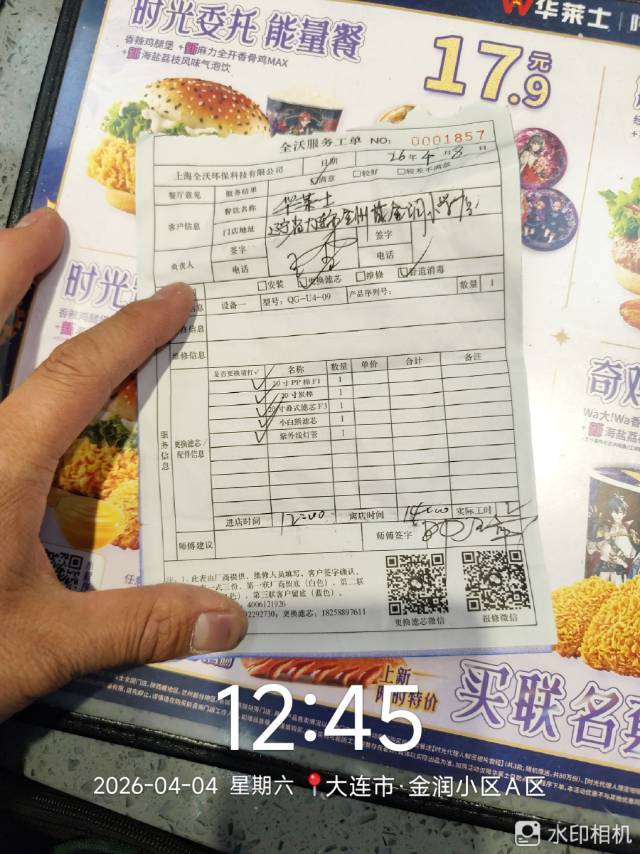 华莱士
时光委托 能量餐
香辣鸡腿堡+麻力全开香骨鸡MAX
+海盐荔枝风味气泡饮
17.9元
全沃服务工单 NO: 0001857
上海全沃环保科技有限公司 日期 26年4月8日
餐厅意见 服务结果 满意 较好 较差不满意
客户信息 餐饮名称 华莱士
门店地址
签字 签字
负责人 电话 电话
安装 更换滤芯 维修 管道消毒
设备一 型号: QG-U4-09 产品序列号: 数量 1
维修信息
服务信息
更换滤芯/配件信息
是否更换请打✓ 名称 数量 单价 合计 备注
✓ 20寸PP棉F1 1
✓ 20寸炭棒 1
✓ 20寸叠式滤芯F3 1
✓ 小白熊滤芯 1
✓ 紫外线灯管 1
进店时间 12:00 离店时间 14:00 实际工时
师傅建议 师傅签字
注: 1、此表由厂商提供, 维修人员填写, 客户签字确认,
一式三份, 第一联厂商留底(白色), 第二联
第三联客户留底(蓝色)。
4006121926
更换滤芯: 18258897611
更换滤芯微信
报修微信
时光
奇妙
Wa大!Wa香
+海盐荔枝
上新
限时特价
买联名
12:45
2026-04-04 星期六 大连市·金润小区A区
水印相机